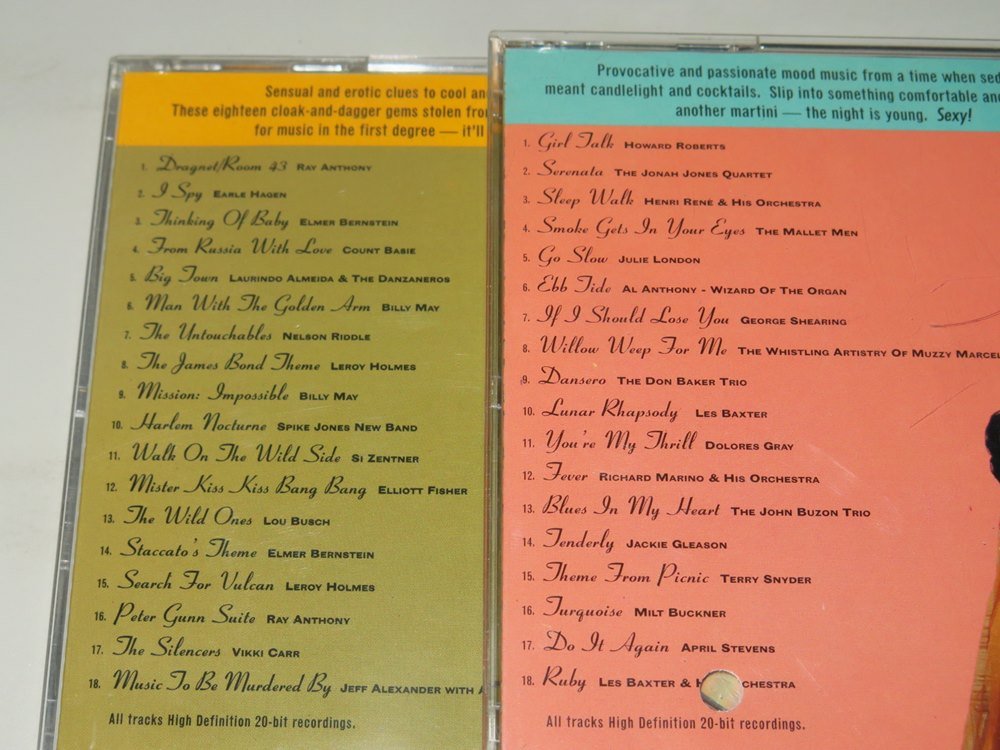 Sensual and erotic clues to cool an
These eighteen cloak-and-dagger gems stolen fro
for music in the first degree — it'll
1. Dragnet/Room 43 RAY ANTHONY
2. I Spy EARLE HAGEN
3. Thinking Of Baby ELMER BERNSTEIN
4. From Russia With Love COUNT BASIE
5. Big Town LAURINDO ALMEIDA & THE DANZANEROS
6. Man With The Golden Arm BILLY MAY
7. The Untouchables NELSON RIDDLE
8. The James Bond Theme LEROY HOLMES
9. Mission: Impossible BILLY MAY
10. Harlem Nocturne SPIKE JONES NEW BAND
11. Walk On The Wild Side SI ZENTNER
12. Mister Kiss Kiss Bang Bang ELLIOTT FISHER
13. The Wild Ones LOU BUSCH
14. Staccato's Theme ELMER BERNSTEIN
15. Search For Vulcan LEROY HOLMES
16. Peter Gunn Suite RAY ANTHONY
17. The Silencers VIKKI CARR
18. Music To Be Murdered By JEFF ALEXANDER WITH
All tracks High Definition 20-bit recordings.
Provocative and passionate mood music from a time when sed
meant candlelight and cocktails. Slip into something comfortable an
another martini — the night is young. Sexy!
1. Girl Talk HOWARD ROBERTS
2. Serenata THE JONAH JONES QUARTET
3. Sleep Walk HENRI RENÉ & HIS ORCHESTRA
4. Smoke Gets In Your Eyes THE MALLET MEN
5. Go Slow JULIE LONDON
6. Ebb Tide AL ANTHONY - WIZARD OF THE ORGAN
7. If I Should Lose You GEORGE SHEARING
8. Willow Weep For Me THE WHISTLING ARTISTRY OF MUZZY MARCEL
9. Dansero THE DON BAKER TRIO
10. Lunar Rhapsody LES BAXTER
11. You're My Thrill DOLORES GRAY
12. Fever RICHARD MARINO & HIS ORCHESTRA
13. Blues In My Heart THE JOHN BUZON TRIO
14. Tenderly JACKIE GLEASON
15. Theme From Picnic TERRY SNYDER
16. Turquoise MILT BUCKNER
17. Do It Again APRIL STEVENS
18. Ruby LES BAXTER & H ORCHESTRA
All tracks High Definition 20-bit recordings.